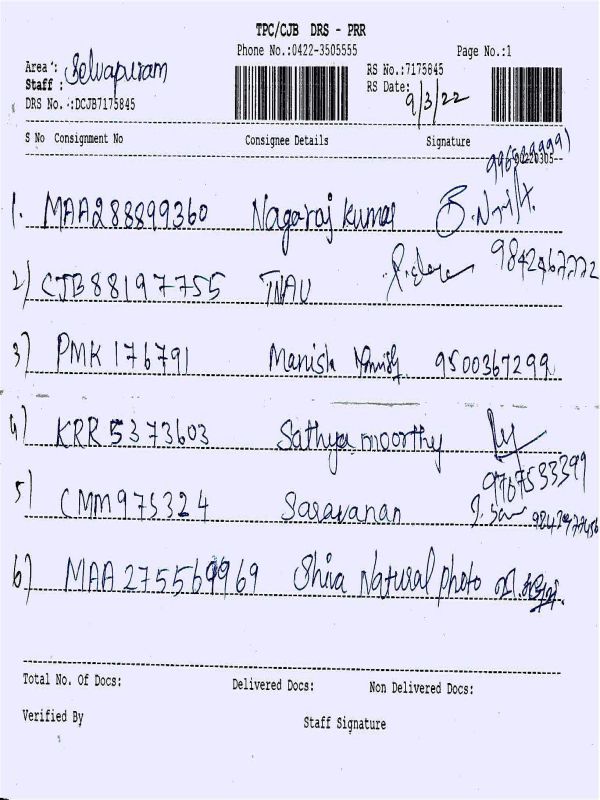 TPC/CJB DRS - PRR
Phone No.:0422-3505555 Page No.:1
Area : Selvapuram
Staff :
RS No.:7175845
RS Date: 9/3/22
DRS No. :DCJB7175845
S No Consignment No Consignee Details Signature
1. MAA288899360 Nagaraj kumar
2) CJB88197755 TNAU
3) PMK176791 Manish 9500367299
4) KRR5373603 Sathya moorthy
9767533399
5) CMM975324 Saravanan
6) MAA 2755699969 Shiva Natural photo
Total No. Of Docs: Delivered Docs: Non Delivered Docs:
Verified By Staff Signature